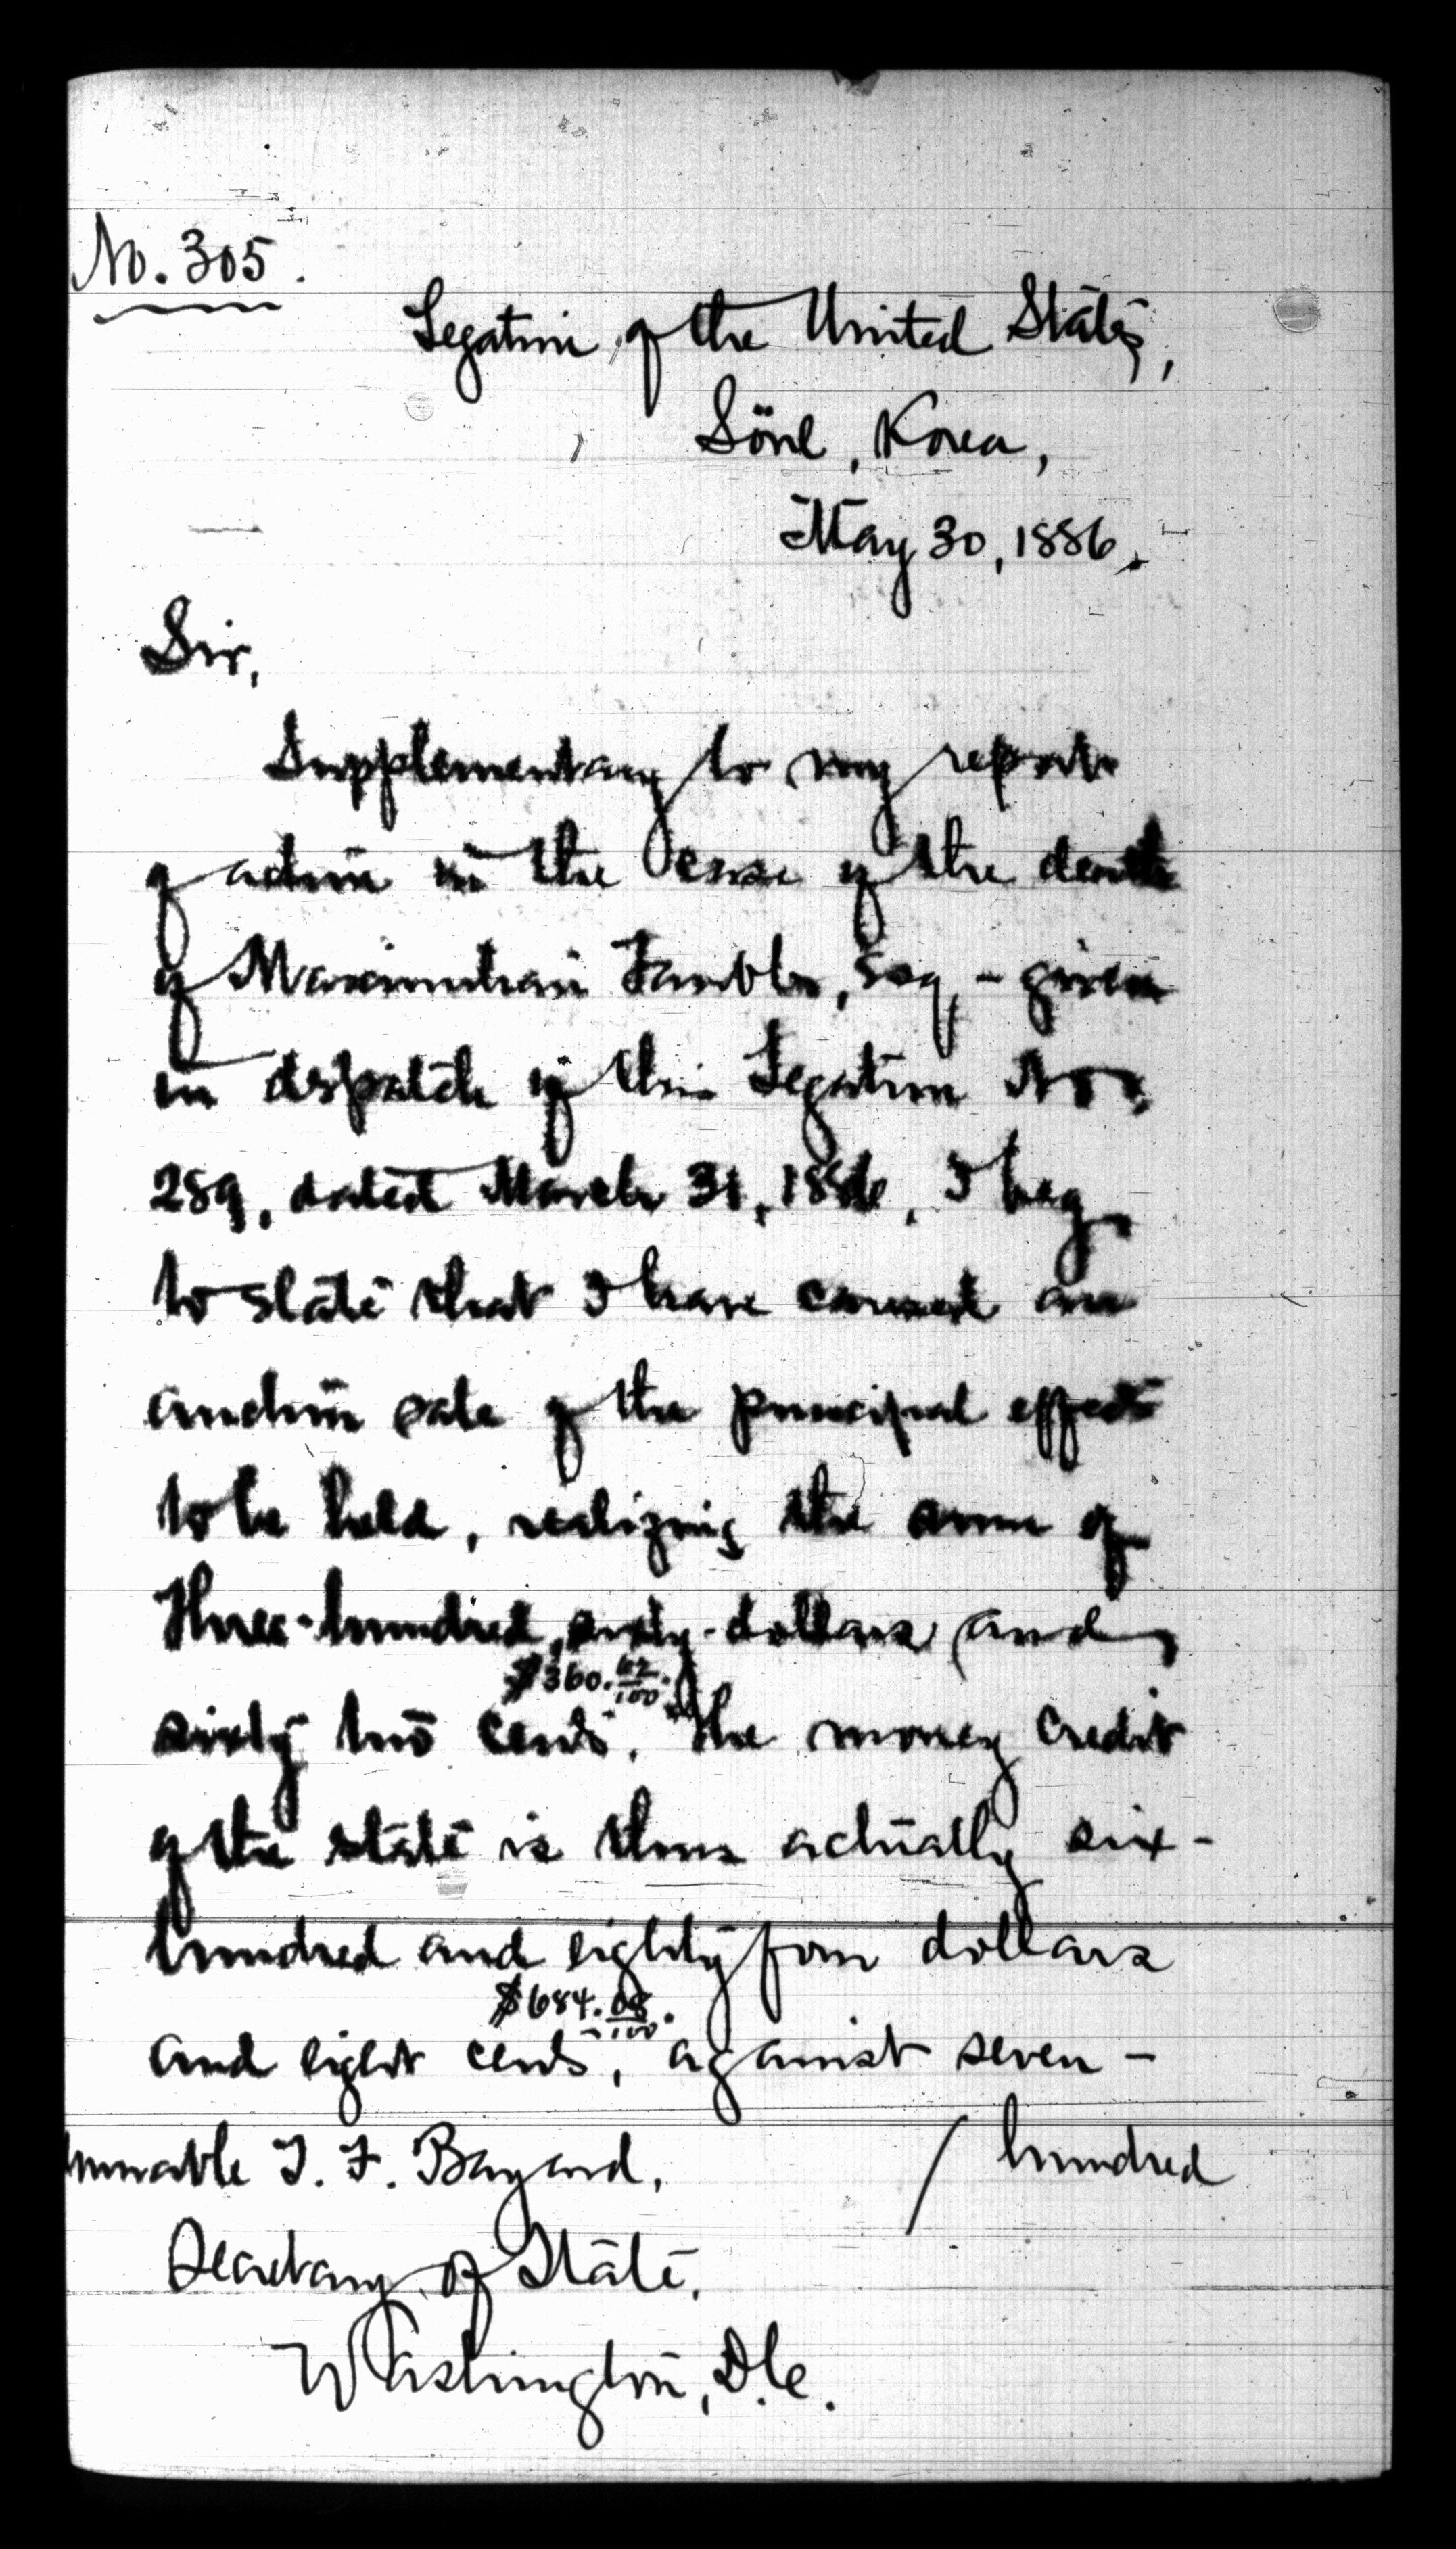 No. 305.
Legation of the United States,
Söul, Korea,
May 30, 1886.
Sir,
Supplementary to my report
of action in the case of the death
of Maximilian Taubles, Esq, - given
in despatch of this Legation No.
289, dated March 31, 1886, I beg
to state that I have caused an
auction sale of the principal effects
to be held, realizing the sum of
Three-hundred, sixty-dollars and
$360.62/100.
sixty two cents. The money credit
of the state is thus actually six-
hundred and eighty four dollars
$684.08/100.
and eight cents, against seven-
/ hundred
Honorable T. F. Bayard,
Secretary of State,
Washington, D.C.